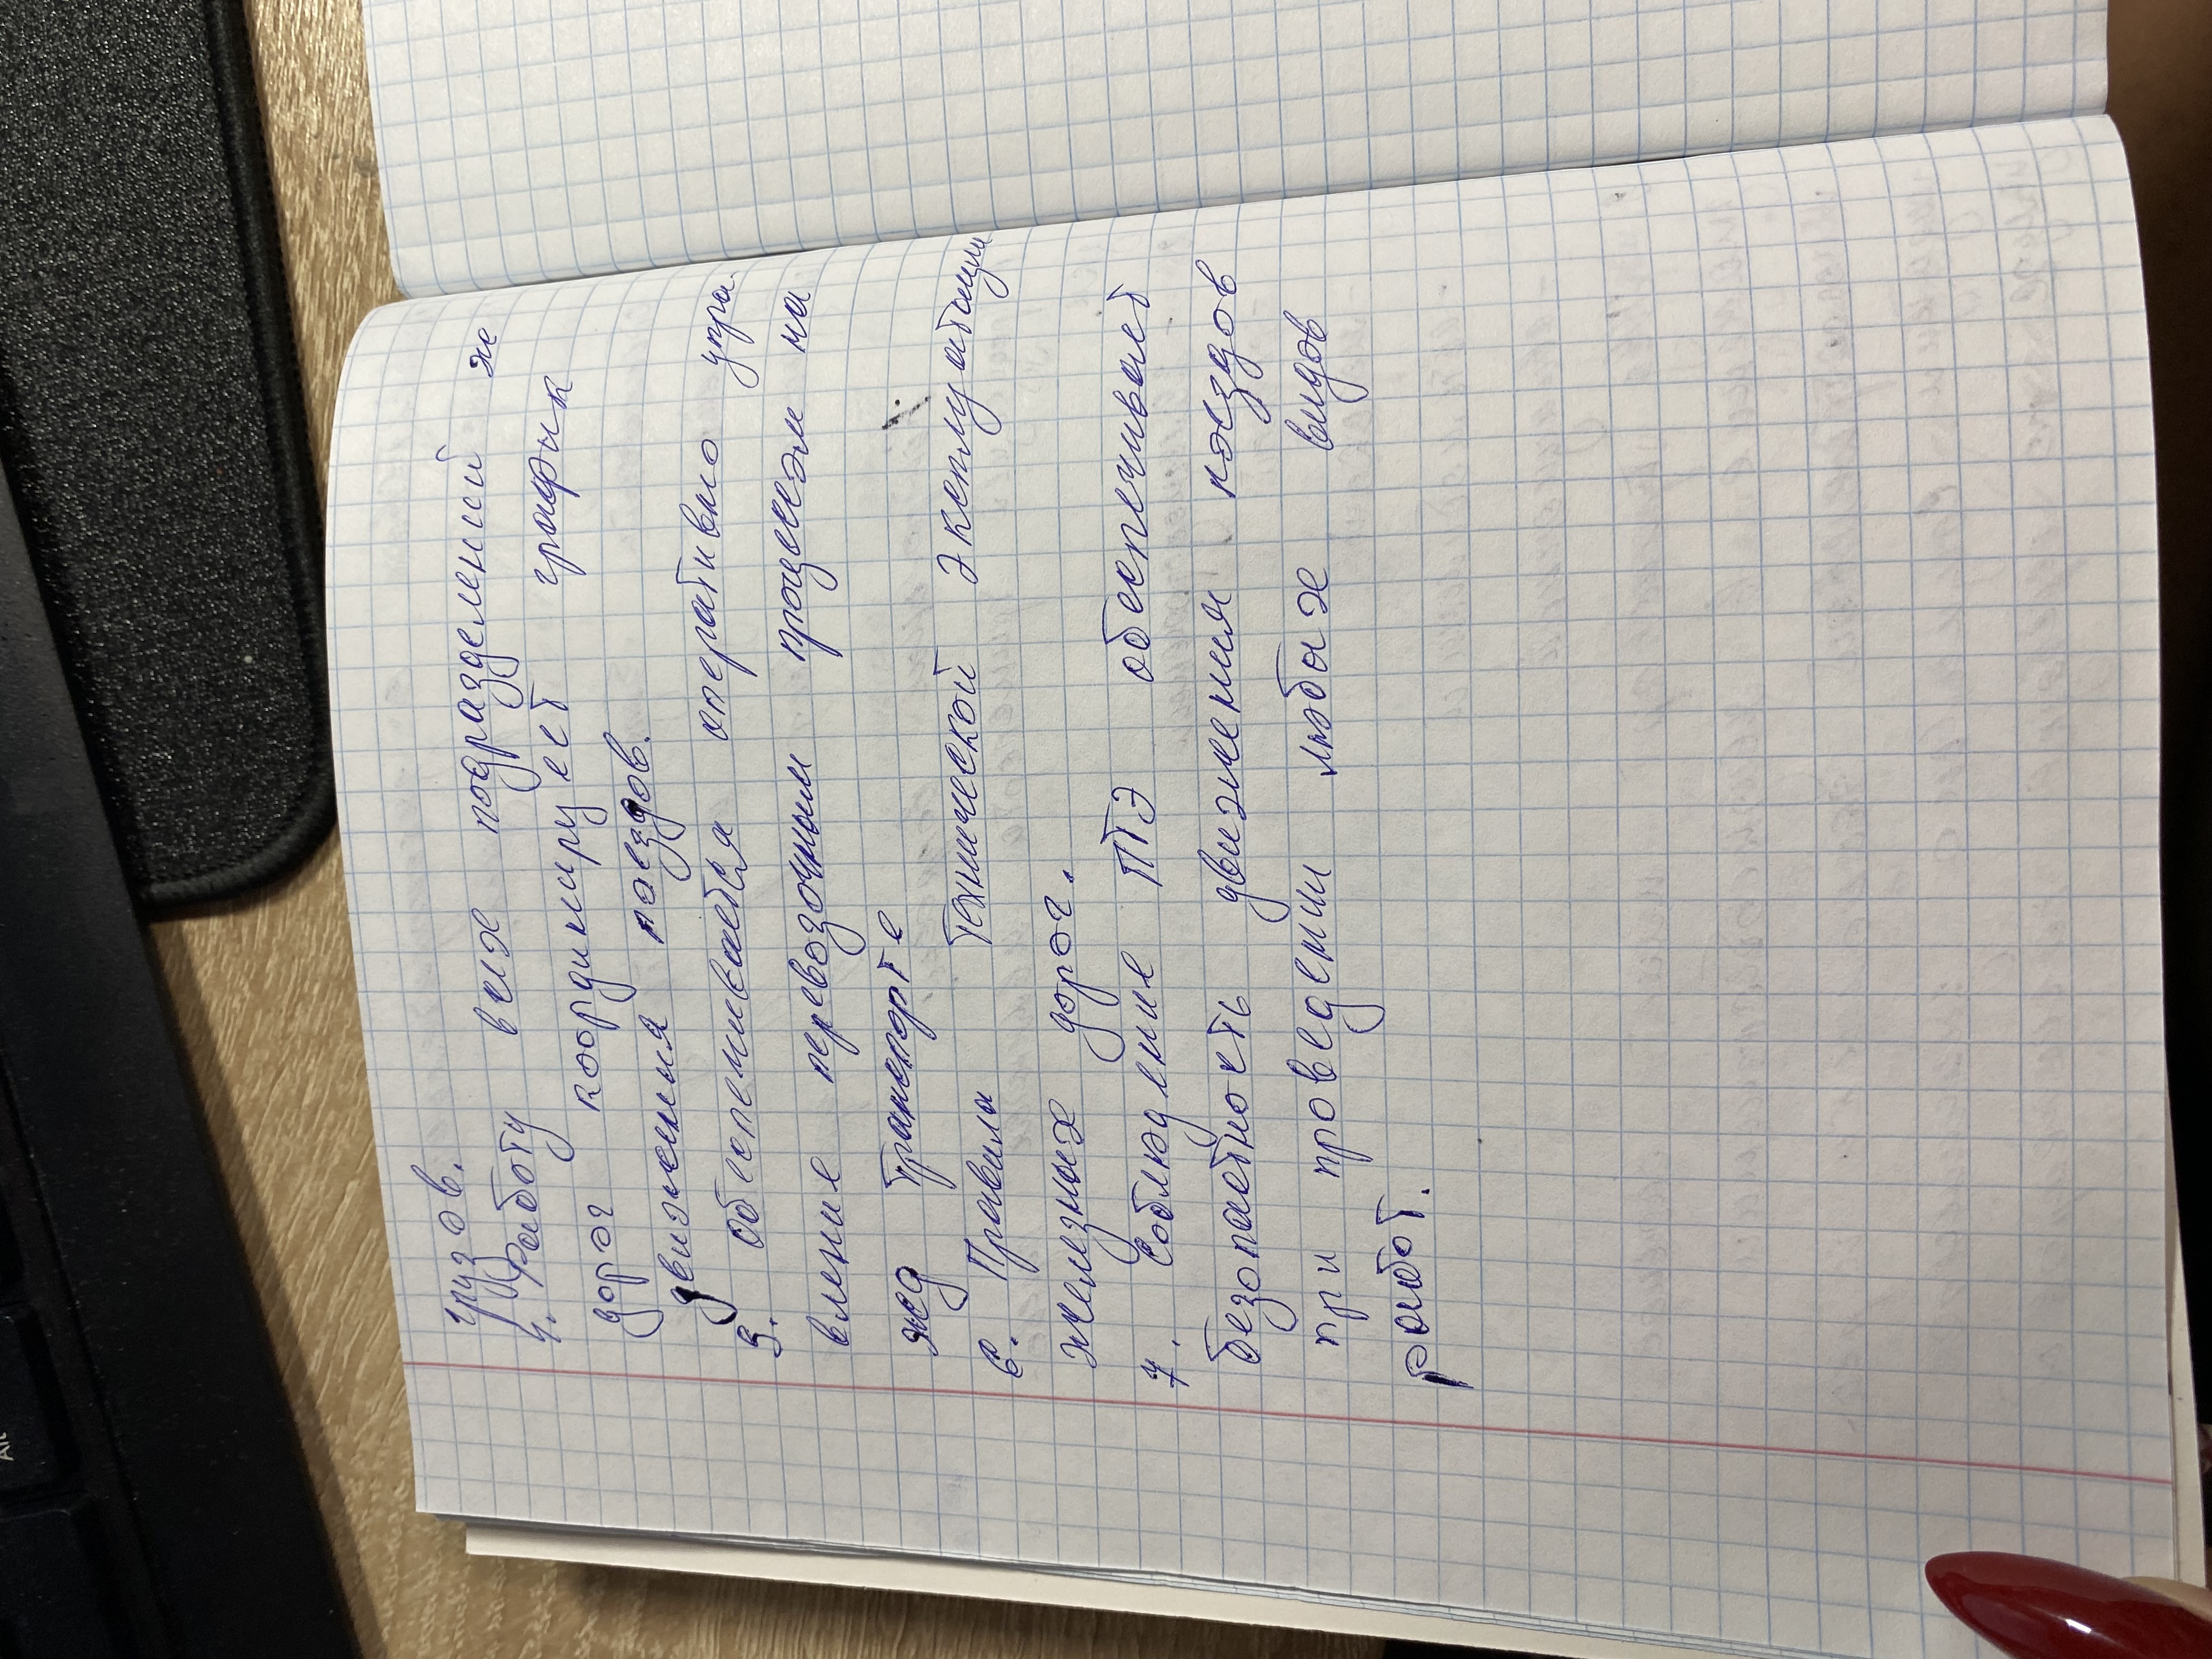 грузов.
4. Работу всех подразделений ж
дорог координирует график
движения поездов.
5. Обеспечивается оперативно упра-
вление перевозочным процессом на
жд транспорте
6. Правила технической эксплуатации
железных дорог.
7. Соблюдение ПТЭ обеспечивает
безопастность движения поездов
при проведении любых видов
работ.
Alt